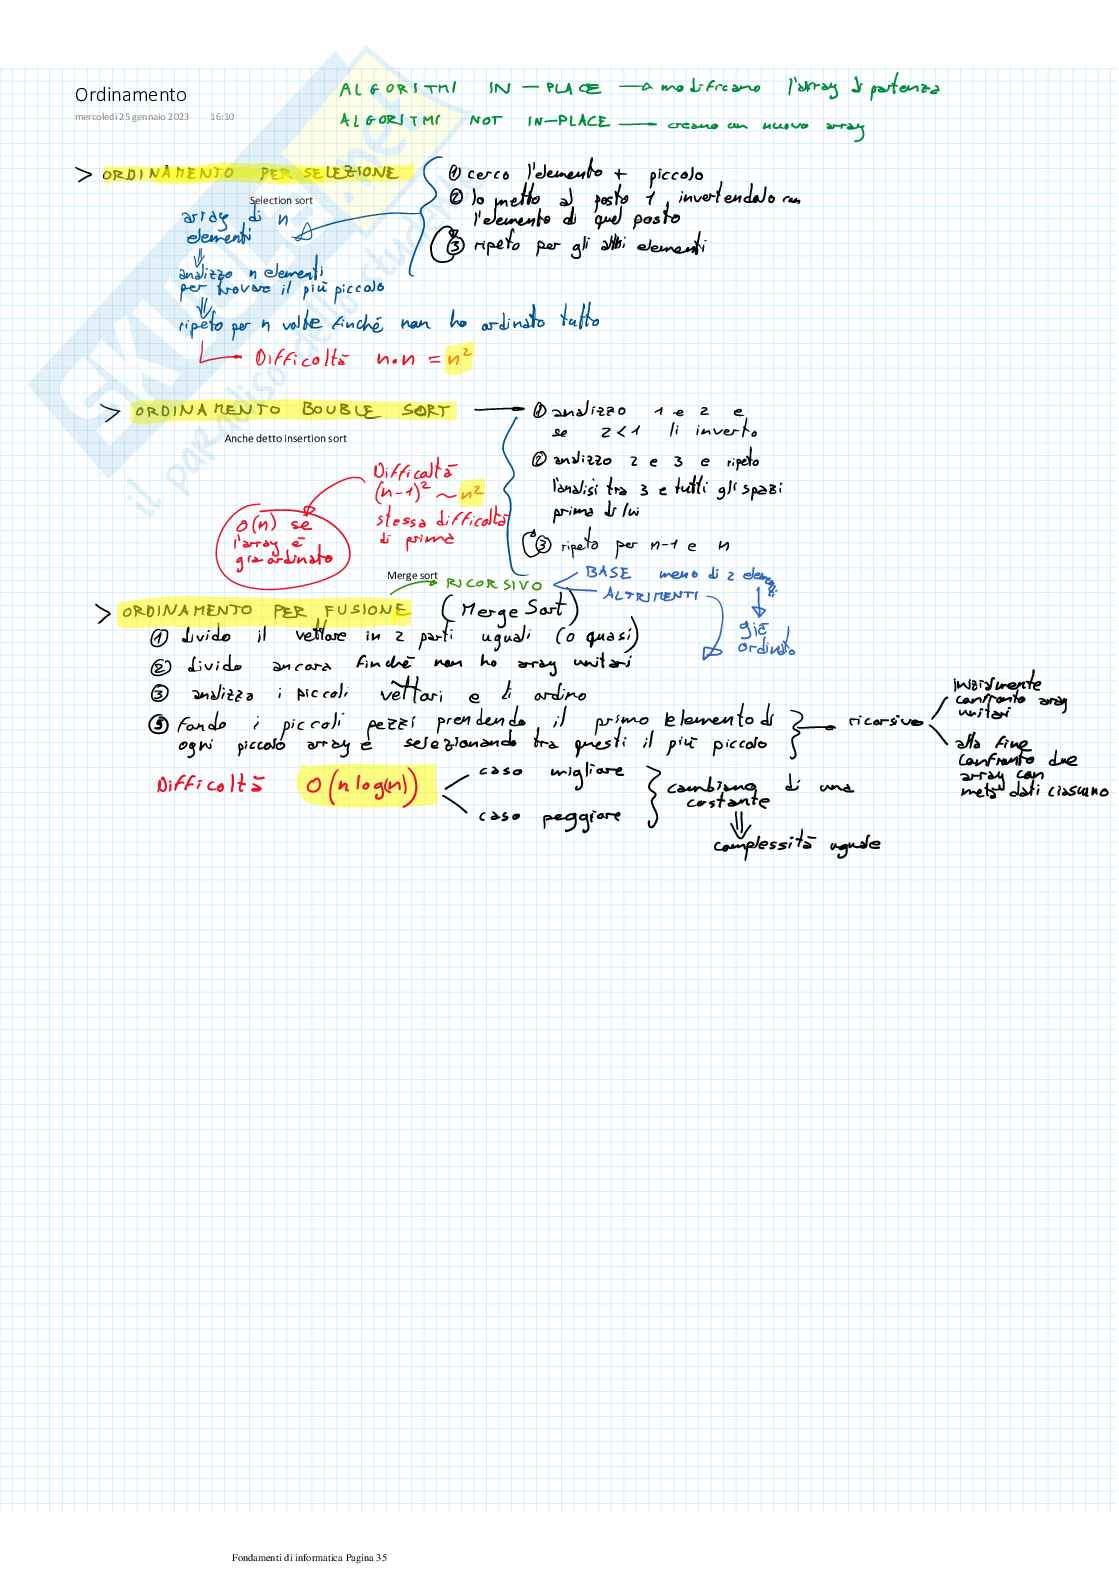 Ordinamento
mercoledì 25 gennaio 2023 16:10
ALGORITMI IN-PLACE → modificano l'array di partenza
ALGORITMI NOT IN-PLACE — creano un nuovo array
> ORDINAMENTO PER SELEZIONE
Selection sort
① cerco l'elemento + piccolo
② lo metto al posto 1, invertendolo con
l'elemento di quel posto
③ ripeto per gli altri elementi
array di n
elementi
⇓
analizzo n elementi
per trovare il più piccolo
⇓
ripeto per n volte finché non ho ordinato tutto
Difficoltà n·n = n²
> ORDINAMENTO BOUBLE SORT
Anche detto insertion sort
① analizzo 1 e 2 e
se 2<1 li inverto
② analizzo 2 e 3 e ripeto
l'analisi tra 3 e tutti gli spazi
prima di lui
③ ripeto per n-1 e n
Difficoltà
(n-1)² ~ n²
stessa difficoltà
di prima
O(n) se
l'array è
già ordinato
Merge sort
RICORSIVO
BASE meno di 2 elementi
ALTRIMENTI
già
ordinato
> ORDINAMENTO PER FUSIONE (Merge Sort)
① divido il vettore in 2 parti uguali (o quasi)
② divido ancora finché non ho array unitari
③ analizzo i piccoli vettori e li ordino
⑤ Fondo i piccoli pezzi prendendo il primo elemento di
ogni piccolo array e selezionando tra questi il più piccolo
ricorsivo
Inizialmente
confronto array
unitari
alla fine
confronto due
array con
metà dati ciascuno
Difficoltà O(n log(n))
caso migliore
caso peggiore
cambiano di una
costante
⇓
complessità uguale
Fondamenti di informatica Pagina 35